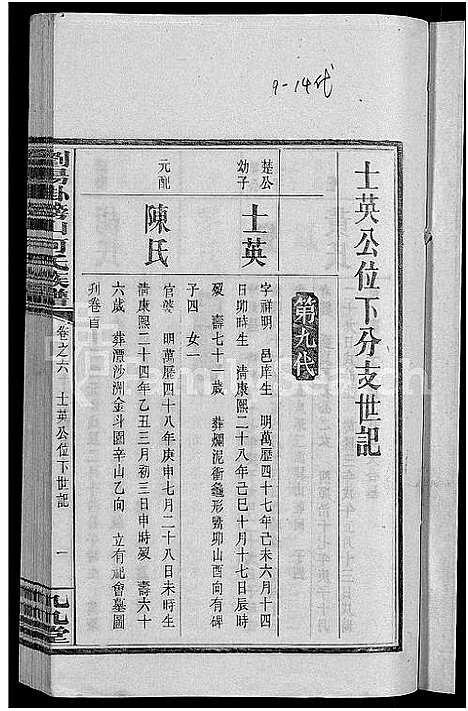 9-14代
士英公位下分支世記
第九代
楚公幼子
士英
字祥明 邑庠生 明萬歷四十七年己未六月十四
日卯時生 清康熙二十八年己巳十月十七日辰時
歿 壽七十一歲 葬爛泥衝龜形鸞卯山酉向有碑
子四 女一
元配
陳氏
官婆 明萬歷四十八年庚申七月二十八日未時生
清康熙二十四年乙丑三月初三日申時歿 壽六十
六歲 葬潭沙洲金斗圖辛山乙向 立有祀會墓圖
刋卷首
卷之六 士英公位下世記 一